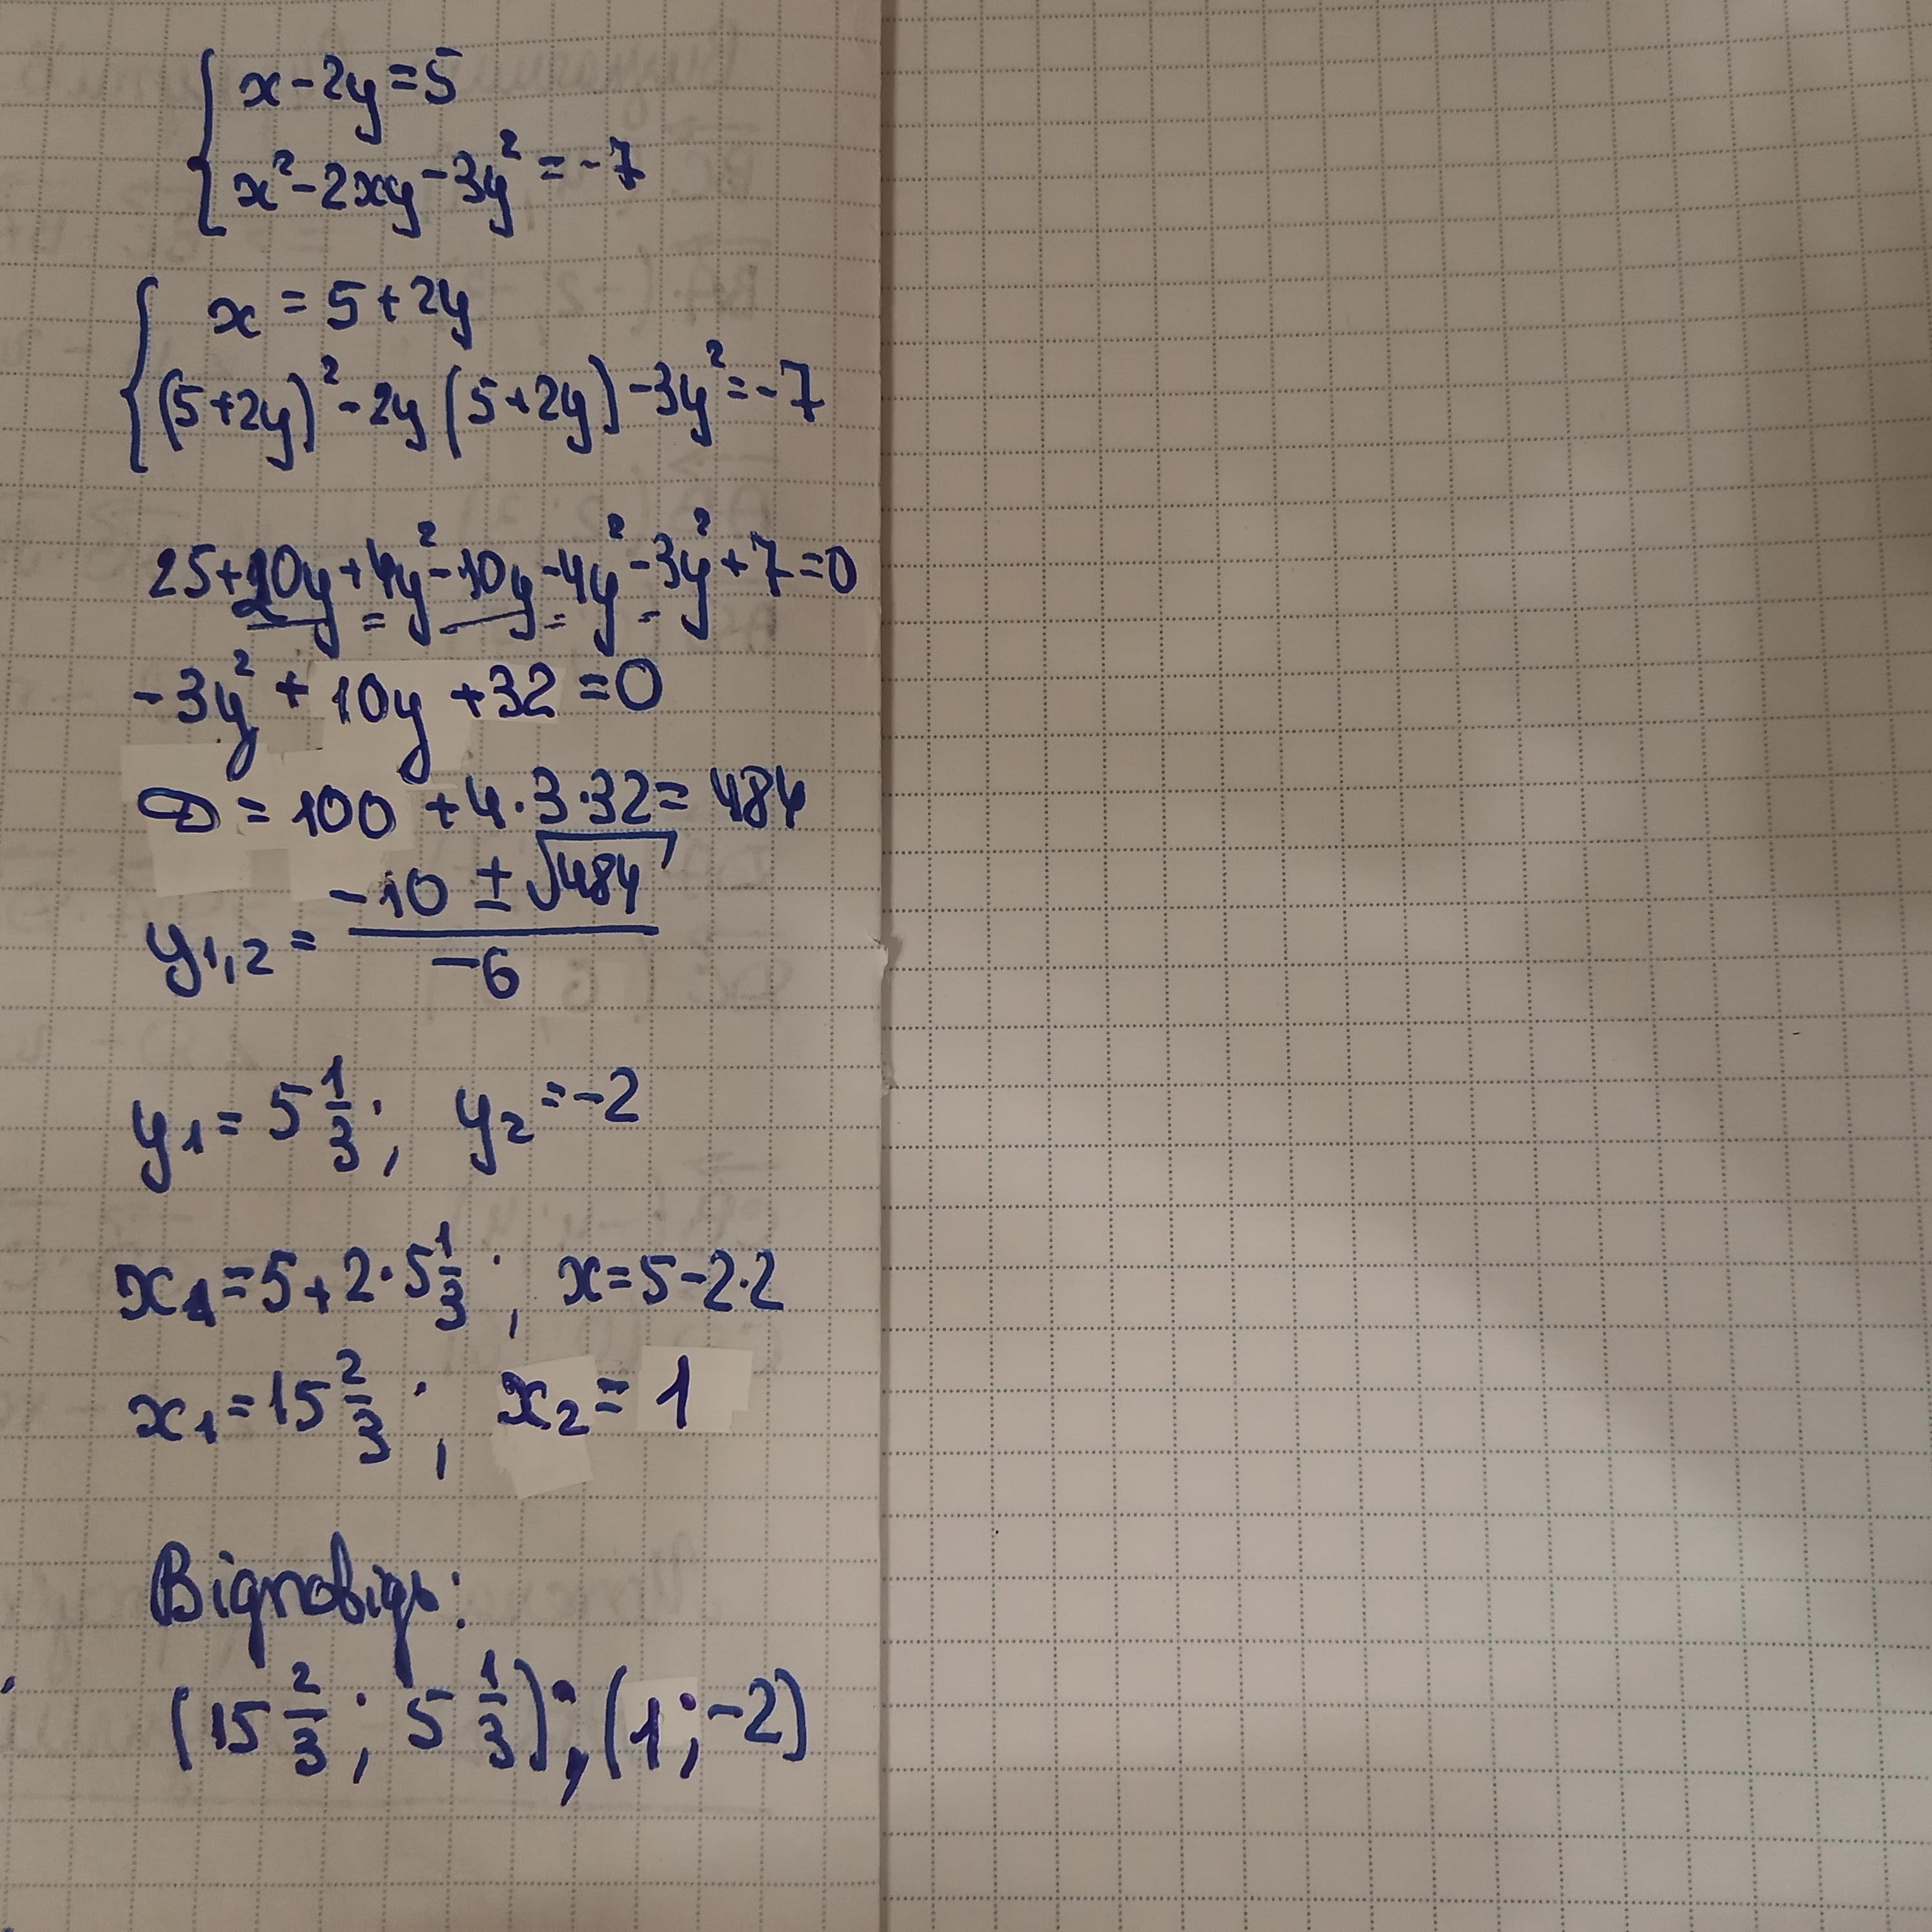 x-2y=5
x²-2xy-3y²=-7
x=5+2y
(5+2y)²-2y(5+2y)-3y²=-7
25+20y+4y²-10y-4y²-3y²+7=0
-3y²+10y+32=0
D=100+4·3·32=484
y₁,₂=(-10±√484)/-6
y₁=5 1/3; y₂=-2
x₁=5+2·5 1/3; x=5-2·2
x₁=15 2/3; x₂=1
Відповідь:
(15 2/3; 5 1/3); (1; -2)